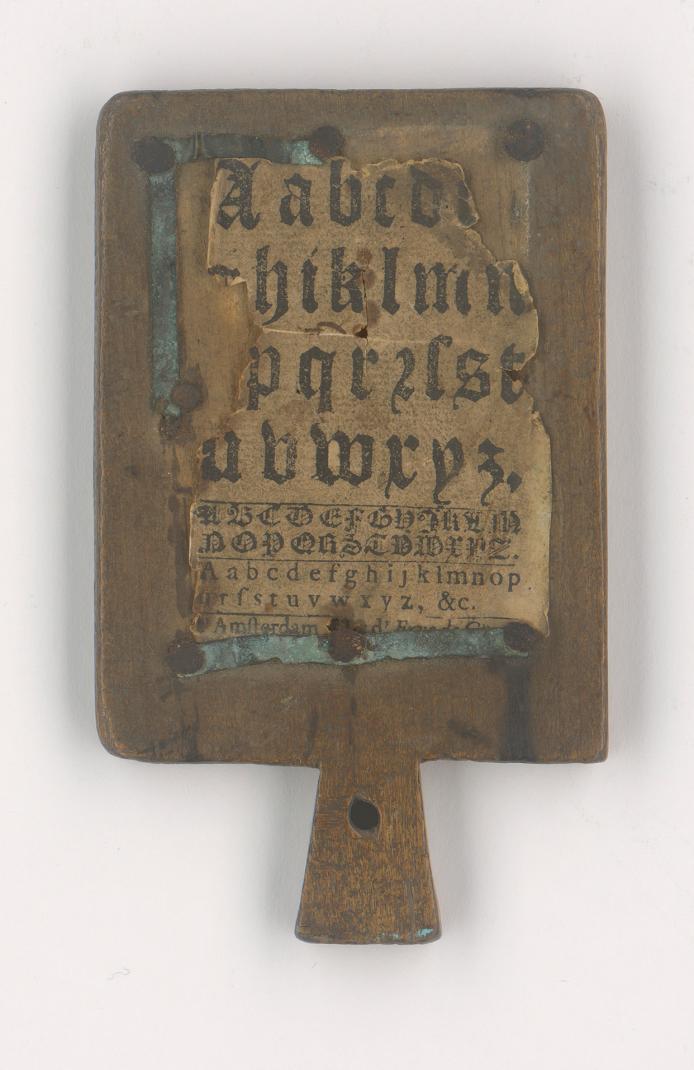 A a b c d
h i k l m n
p q r ꝛ ſ s t
u v w x y z.
A B C D E F G H I K L M
N O P Q R S T V W X Y Z.
A a b c d e f g h i j k l m n o p
r ſ s t u v w x y z, &c.
Amsterdam